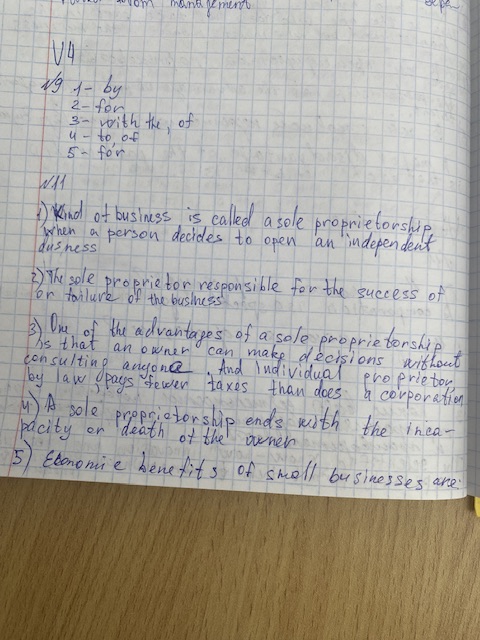 management
V4
№9 1- by
2- for
3- with the, of
4- to of
5- for
№11
1) Kind of business is called a sole proprietorship
when a person decides to open an independent
dusness
2) The sole proprietor responsible for the success of
or failure of the business
3) One of the advantages of a sole proprietorship
is that an owner can make decisions without
consulting anyone. And individual proprietor,
by law, pays fewer taxes than does a corporation
4) A sole proprietorship ends with the inca-
pacity or death of the owner
5) Economic benefits of small businesses are: